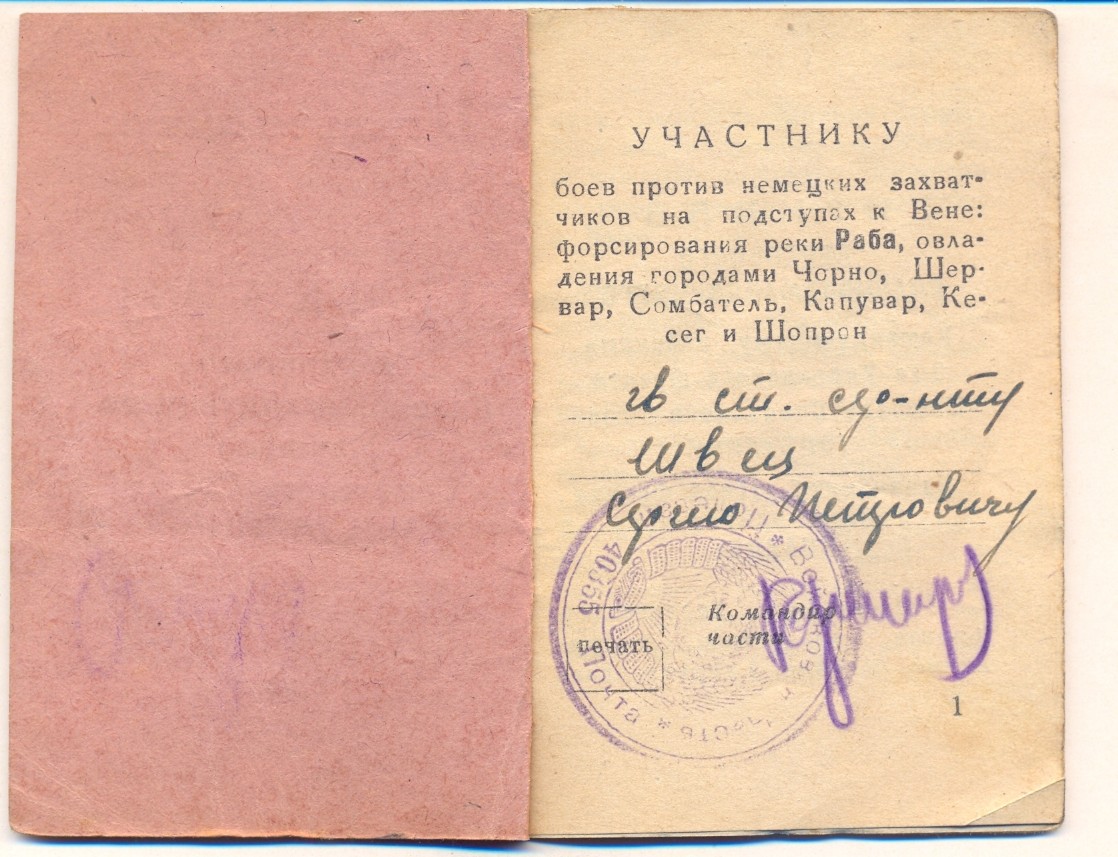 УЧАСТНИКУ
боев против немецких захват-
чиков на подступах к Вене:
форсирования реки Раба, овла-
дения городами Чорно, Шер-
вар, Сомбатель, Капувар, Ке-
сег и Шопрон
гв ст. с-нту
Швец
Сергею Петровичу
Командир
части
печать
40355
Почта * часть
1